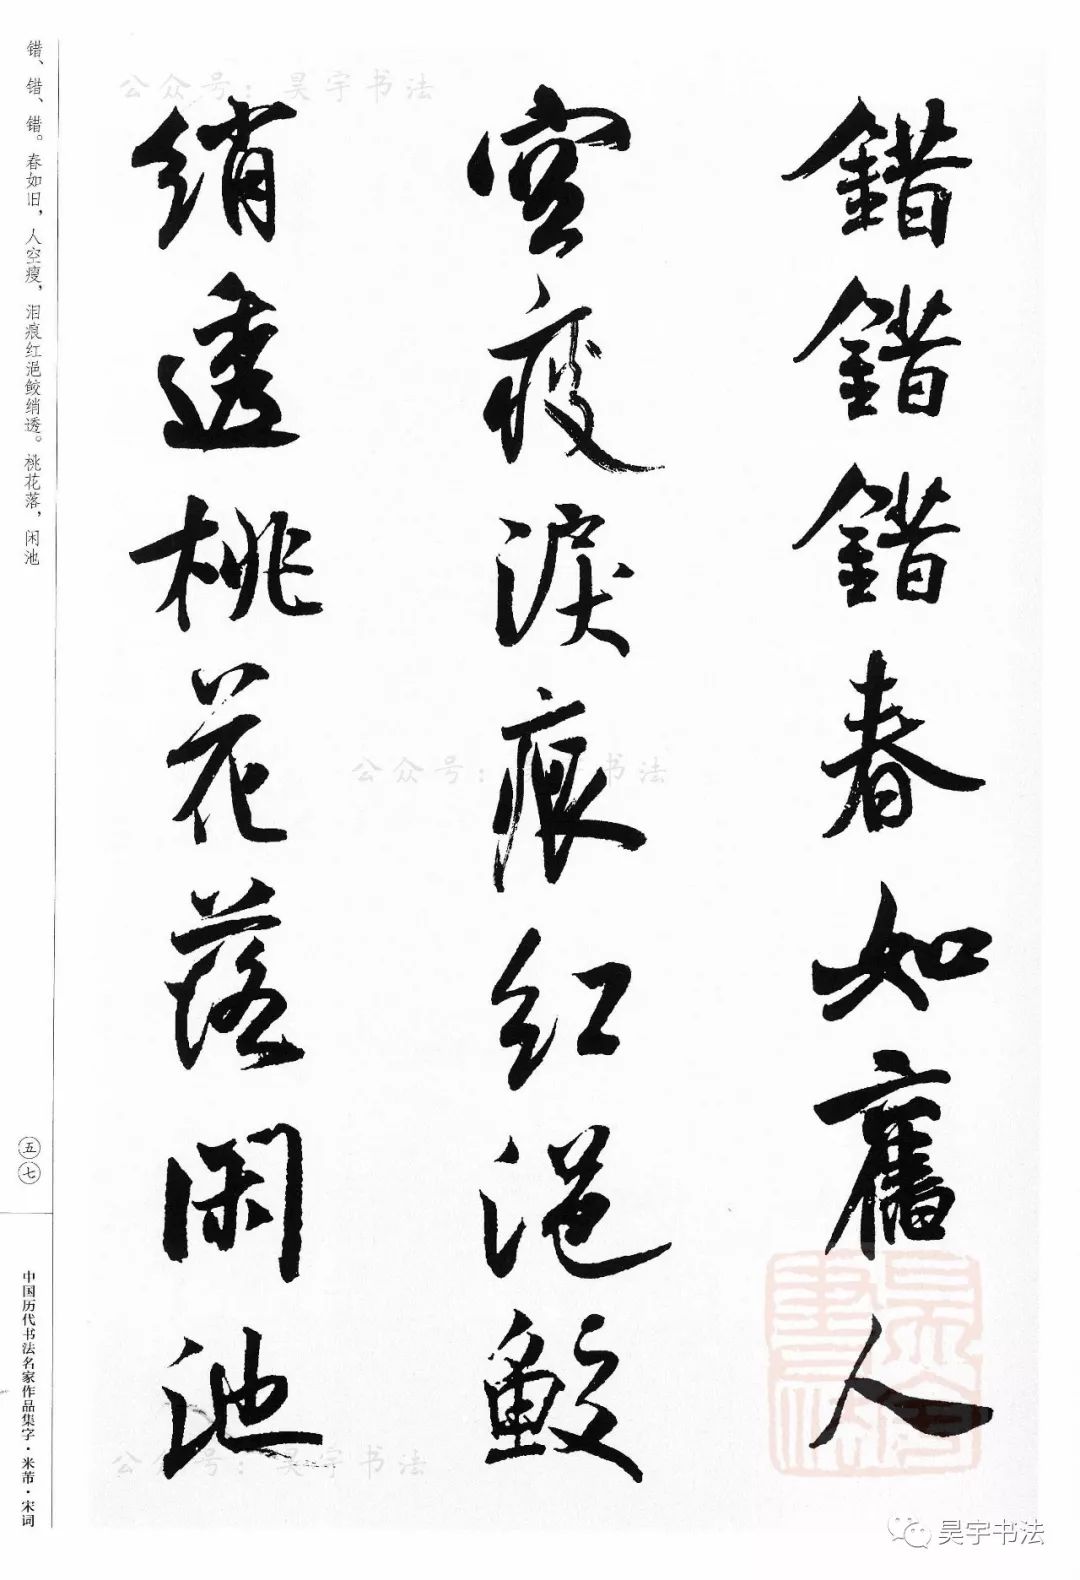 錯錯錯春如舊人
空瘦淚痕紅浥鮫
綃透桃花落閑池
错、错、错。春如旧，人空瘦，泪痕红浥鲛绡透。桃花落，闲池
五七
中国历代书法名家作品集字·米芾·宋词
公众号：昊宇书法
公众号：昊宇书法
公众号：昊宇书法
昊宇书法